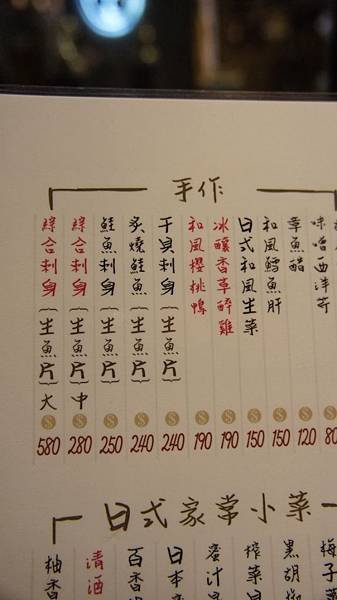 手作
味噌西洋芹 80
章魚醋 120
和風鱈魚肝 150
日式和風生菜 150
冰釀香草醉雞 190
和風櫻桃鴨 190
干貝刺身(生魚片) 240
炙燒鮭魚(生魚片) 240
鮭魚刺身(生魚片) 250
綜合刺身(生魚片)中 280
綜合刺身(生魚片)大 580
日式家常小菜
梅子
黑胡椒
榨菜
蜜汁
日本
百香
清酒
柚香